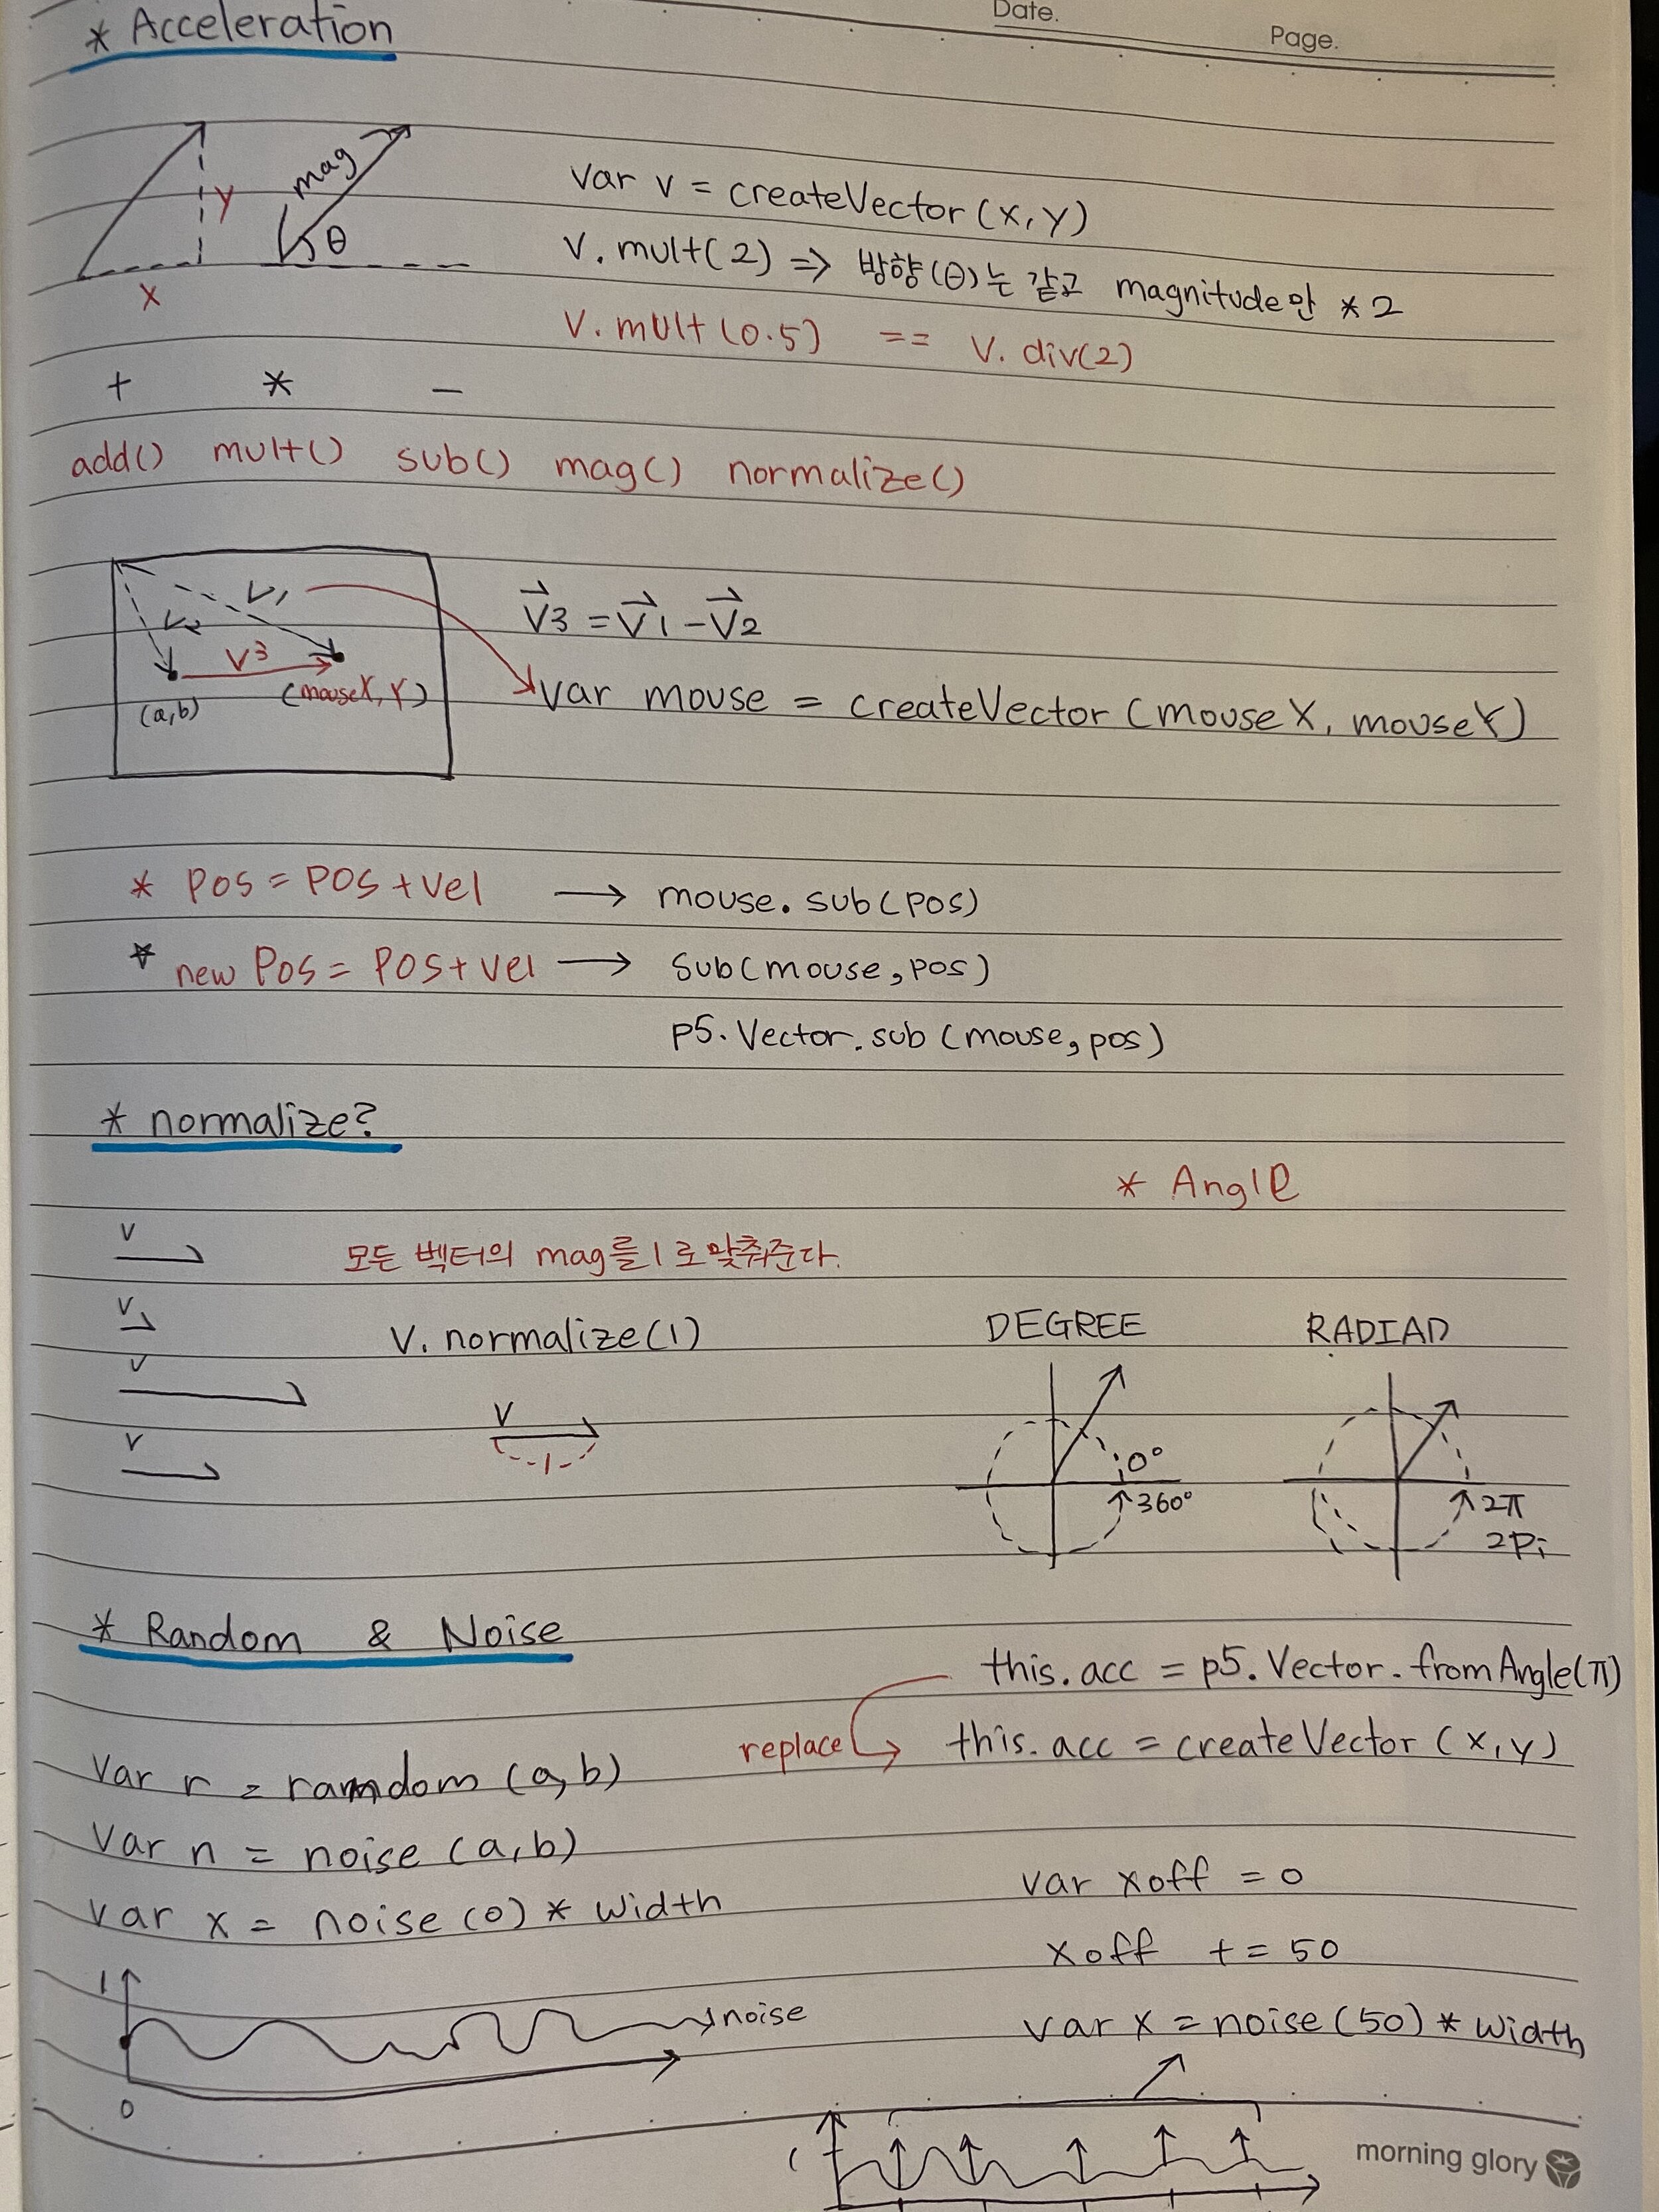 Date.
Page.
* Acceleration
mag
y
θ
x
var v = createVector(x,y)
v.mult(2) => 방향(θ)는 같고 magnitude만 *2
v.mult(0.5) == v.div(2)
+ * -
add() mult() sub() mag() normalize()
V1
V2
V3
(a,b)
(mouseX, Y)
V3 = V1 - V2
var mouse = createVector(mouseX, mouseY)
* pos = pos + vel → mouse.sub(pos)
* new Pos = pos + vel → sub(mouse, pos)
p5.Vector.sub(mouse, pos)
* normalize?
* Angle
v
모든 벡터의 mag를 1로 맞춰준다.
v
v.normalize(1)
DEGREE
RADIAD
v
v
v
1
0°
360°
2π
2Pi
* Random & Noise
this.acc = p5.Vector.fromAngle(π)
replace
this.acc = createVector(x,y)
var r = ramndom(a,b)
var n = noise(a,b)
var x = noise(0) * width
var xoff = 0
xoff += 50
var x = noise(50) * width
1
noise
0
morning glory